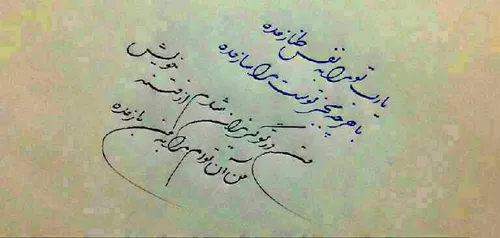 یارب تو مرا به نفس طناز مده
با هر چه بجز توست مرا ساز مده
من در تو گریزان شدم از فتنه خویش
من آن توام مرا به من باز مده